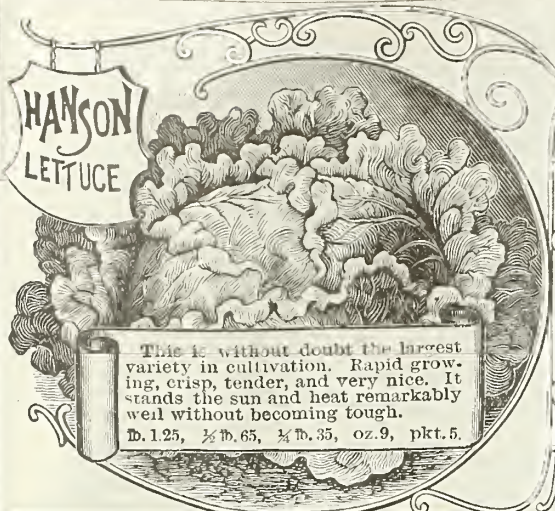 HANSON
LETTUCE
This is without doubt the largest
variety in cultivation. Rapid grow-
ing, crisp, tender, and very nice. It
stands the sun and heat remarkably
well without becoming tough.
℔. 1.25, ½ ℔. 65, ¼ ℔. 35, oz. 9, pkt. 5.